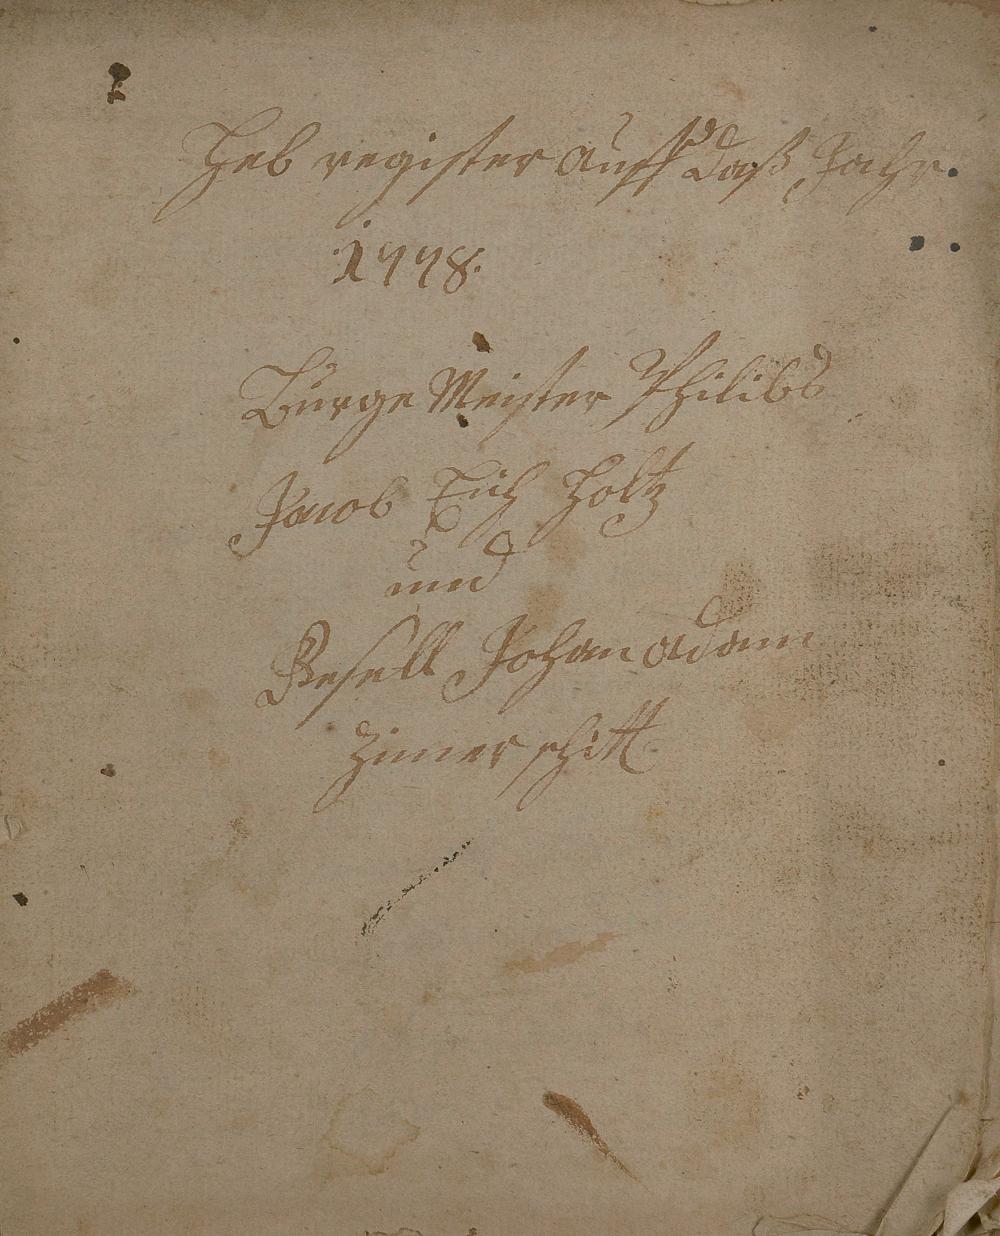 Heb register auff daß Jahr.
1778.
Bürge Meister Philibs
Jacob Eich Holtz
und
Gesell Johan adam
Zimer schitt